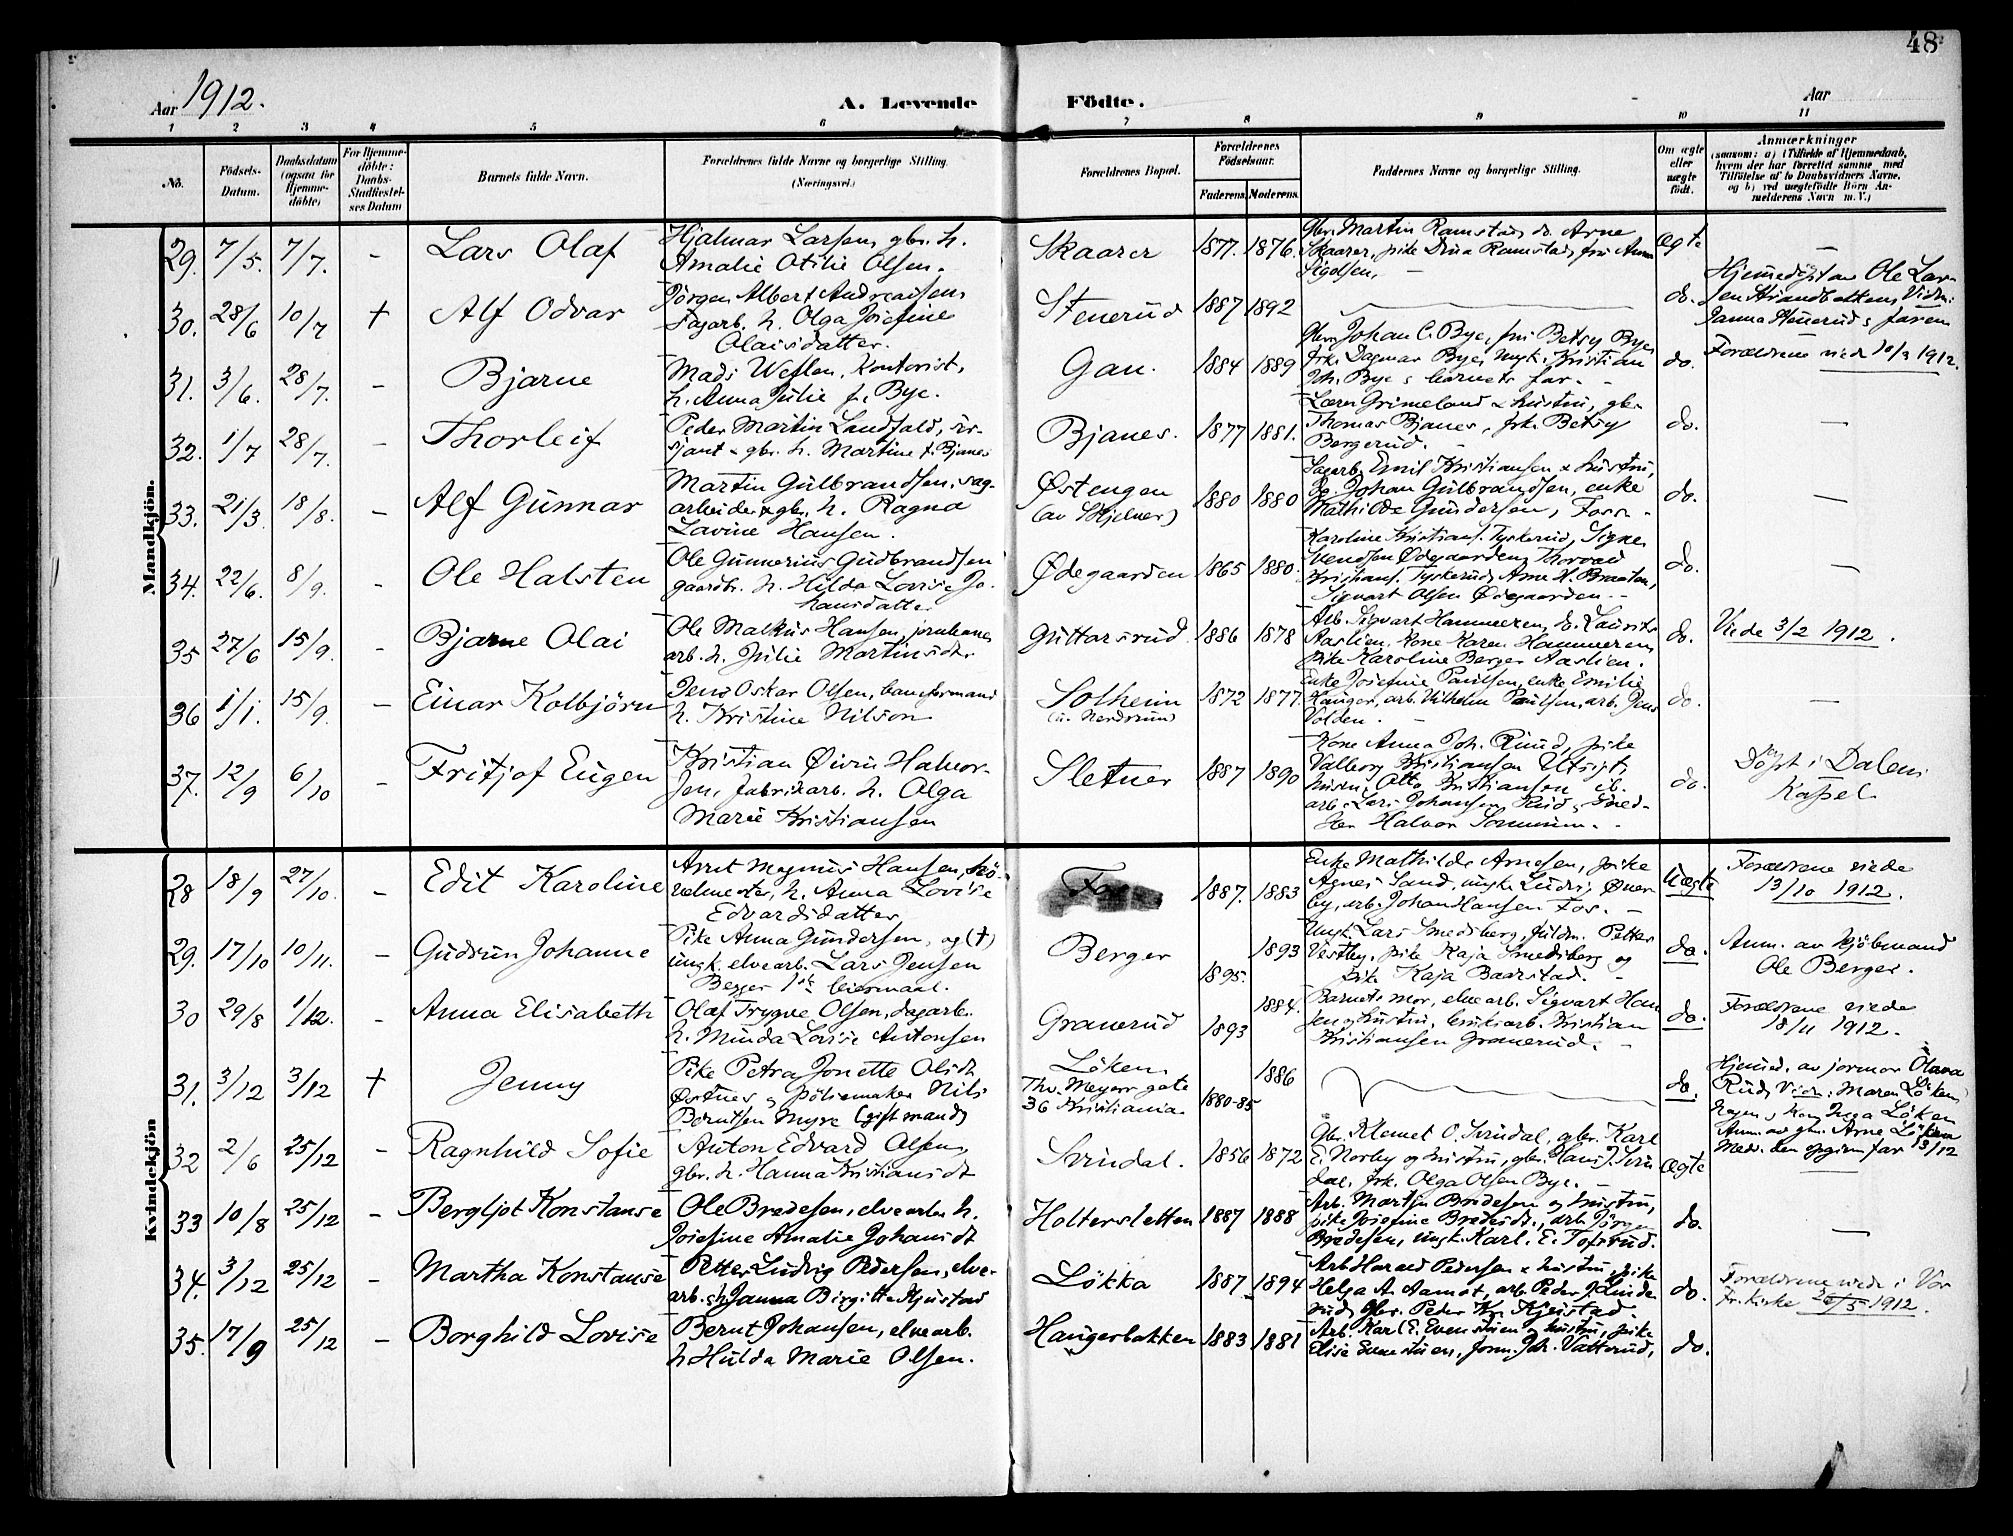 48
Aar 1912.
A. Levende Födte.
Aar
1 2 3 4 5 6 7 8 9 10 11
No.
Födsels-
Datum.
Daabsdatum
(ogsaa for
Hjemme-
döbte)
For Hjemme-
döbte:
Daabs-
Stadfæstel-
ses Datum
Barnets fulde Navn.
Forældrenes fulde Navne og borgerlige Stilling.
(Næringsvei.)
Forældrenes Bopæl.
Forældrenes
Födselsaar.
Faderens. Moderens.
Faddernes Navne og borgerlige Stilling.
Om ægte
eller
uægte
født.
Anmærkninger
(saasom: a) i Tilfælde af Hjemmedaab,
hvem der har forrettet samme med
Tilföielse af to Daabsvidners Navne,
og b) ved uægtefödte Börn An-
melderens Navn m. V.)
Mandkjön.
29. 7/5. 7/7. - Lars Olaf
Hjalmar Larsen, gbr. h.
Amalie Otilie Olsen.
Skaarer 1877. 1876.
Gbr. Martin Ramstad, do. Arne
Skaarer, pike Dina Ramstad, fru Anna
Sigolsen,
Ægte -
30. 28/6 10/7 + Alf Odvar
Jörgen Albert Andreassen,
Sagarb. h. Olga Josefine
Olaisdatter.
Stenerud 1887 1892
do.
Hjemmedöpt av Ole Lar-
sen Strandbakken, Vidn:
Janna Stenerud & faren
31. 3/6. 28/7. - Bjarne
Mads Weflen, Kontorist,
h. Anna Julie f. Bye.
Gan. 1884 1889
Gbr. Johan C. Bye, fru Betsy Bye,
frk. Dagmar Bye, ungk. Kristian
Joh. Bye & barnets far. -
do.
Forældrene viede 10/3 1912.
32. 1/7 28/7. - Thorleif
Peder Martin Landfald, ser-
sjant & gbr. h. Martine f. Bjanes
Bjanes. 1877 1881.
Lærer Grimeland & hustru, gbr.
Thomas Bjanes, frk. Betsy
Bergerud. -
do. -
33. 21/3. 18/8. - Alf Gunnar
Martin Gulbrandsen, sag-
arbeider & gbr. h. Ragna
Lavine Hansen.
Østengen
(av Skjelner)
1880 1880
Sagarb. Emil Kristiansen & hustru,
do Johan Gulbrandsen, enke
Mathilde Gundersen, Foss. -
do. -
34. 22/6. 8/9. - Ole Halsten
Ole Gunnerius Gudbrandsen
gaardbr. h. Hilda Lovise Jo-
hansdatter
Ødegaarden 1865 1880.
Karoline Kristians. Tyskerud, Signe
Svendsen Ødegaarden, Thorvad
Kristians. Tyskerud, Arne H. Braaten,
Sigvart Olsen Ødegaarden. -
do. -
35 27/6 15/9. - Bjarne Olai
Ole Markus Hansen, jernbane
arb. h. Julie Martinsdt.
Guttarsrud 1886 1878
Arb. Sigvart Hammeren, do. Laurits
Aaslien, kone Karen Hammeren,
pike Karoline Berger Aaslien.
do. Viede 3/2 1912.
36 1/1. 15/9. - Einar Kolbjörn
Jens Oskar Olsen, baneformand
h. Kristine Nilson
Solheim
(u. Nerdrum)
1872 1877.
Enke Josefine Paulsen, enke Emilie
Hauger, arb. Vilhelm Paulsen, arb. Jens
Volden. -
do. -
37. 12/9 6/10 - Fritjof Eugen
Kristian Øivin Halvor-
sen, fabrikarb. h. Olga
Marie Kristiansen
Sletner 1887 1890
Kone Anna Joh. Ruud, pike
Valborg Kristiansen Utsigt,
Otto Kristiansen
arb. Lars Johansen Rud,
Halvor Sorumsrn. -
do.
Döpt i Dalens
Kapel
Kvindekjön
28 18/9 27/10. - Edit Karoline
Arnt Magnus Hansen, kö-
relmester, h. Anna Lovise
Edvardsdatter
Foss 1887. 1883
Enke Mathilde Arnesen, pike
Agnes Sand, ungk. Ludv. Øver-
by, arb. Johan Hansen Fos. -
Uægte
Forældrene viede
13/10 1912.
29. 17/10 10/11. - Gudrun Johanne
Pike Anna Gundersen, og (+)
ungk. elvearb. Lars Jensen
Berger 1ste leiermaal.
Berger 1895. 1893
Ungk. Lars Smedsberg, fuldm. Petter
Vestby, pike Kaja Smedsberg og
pike Kaja Baarstad.
do.
Anm. av kjöbmand
Ole Berger.
30 29/8 1/12. - Anna Elisabeth
Olaf Trygve Olsen, dagarb.
h. Minda Lovise Antonsen
Granerud 1893 1884.
Barnets mor, elvearb. Sigvart Han-
sen og hustru, bruksarb. Kristian
Kristiansen Granerud. -
do.
Forældrene viede
18/11 1912.
31. 3/12 3/12 + Jenny
Pike Petra Jonette Olsdt.
Østnes og pölsemaker Nils
Berntsen Myre (gift mand)
Löken
Thv. Meyers gate
36 Kristiania
1880-85 1886
do.
Hjemd. av jormor Olava
Rud, Vidn: Maren Löken,
Hagen & kone Inga Löken
Anm. av gbr. Arne Löken
Med. den opgivn far 13/12
32 2/6 25/12 - Ragnhild Sofie
Anton Edvard Olsen,
gbr. h. Hanna Kristiansdt
Svindal. 1856 1872
Gbr. Klemet O. Svindal, gbr. Karl
E. Norby og hustru, gbr. Hans J. Svin-
dal, frk. Olga Olsen Bye. -
Ægte
33 10/8 25/12 - Bergljot Konstanse
Ole Bredesen, elvearb. h.
Josefine Amalie Johansdt
Holtersletten 1887 1888
Arb. Martin Bredesen og hustru,
pike Josefine Bredesdt., arb. Jörgen
Bredesen, ungk. Karl. E. Tofsrud.
do. -
34. 3/12 25/12 - Martha Konstanse
Petter Ludvig Pedersen, elve-
arb. & h. Janna Birgitte Kjustad
Lökka 1887 1894
Arb. Harald Pedersen & hustru, pike
Helga A. Aamot, arb. Peder J. Linde-
rud, gbr. Peder Kr. Kjeustad.
do.
Forældrene viede i Vor
Fr. kirke 26/5 1912.
35. 17/9 25/12 - Borghild Lovise
Bernt Johansen, elvearb.
h. Hulda Marie Olsen.
Haugerbakken 1883 1881
Arb. Karl E. Evenstuen & hustru, pike
Elise Evenstuen, Jorm. Joh. Vattsrud,
do.